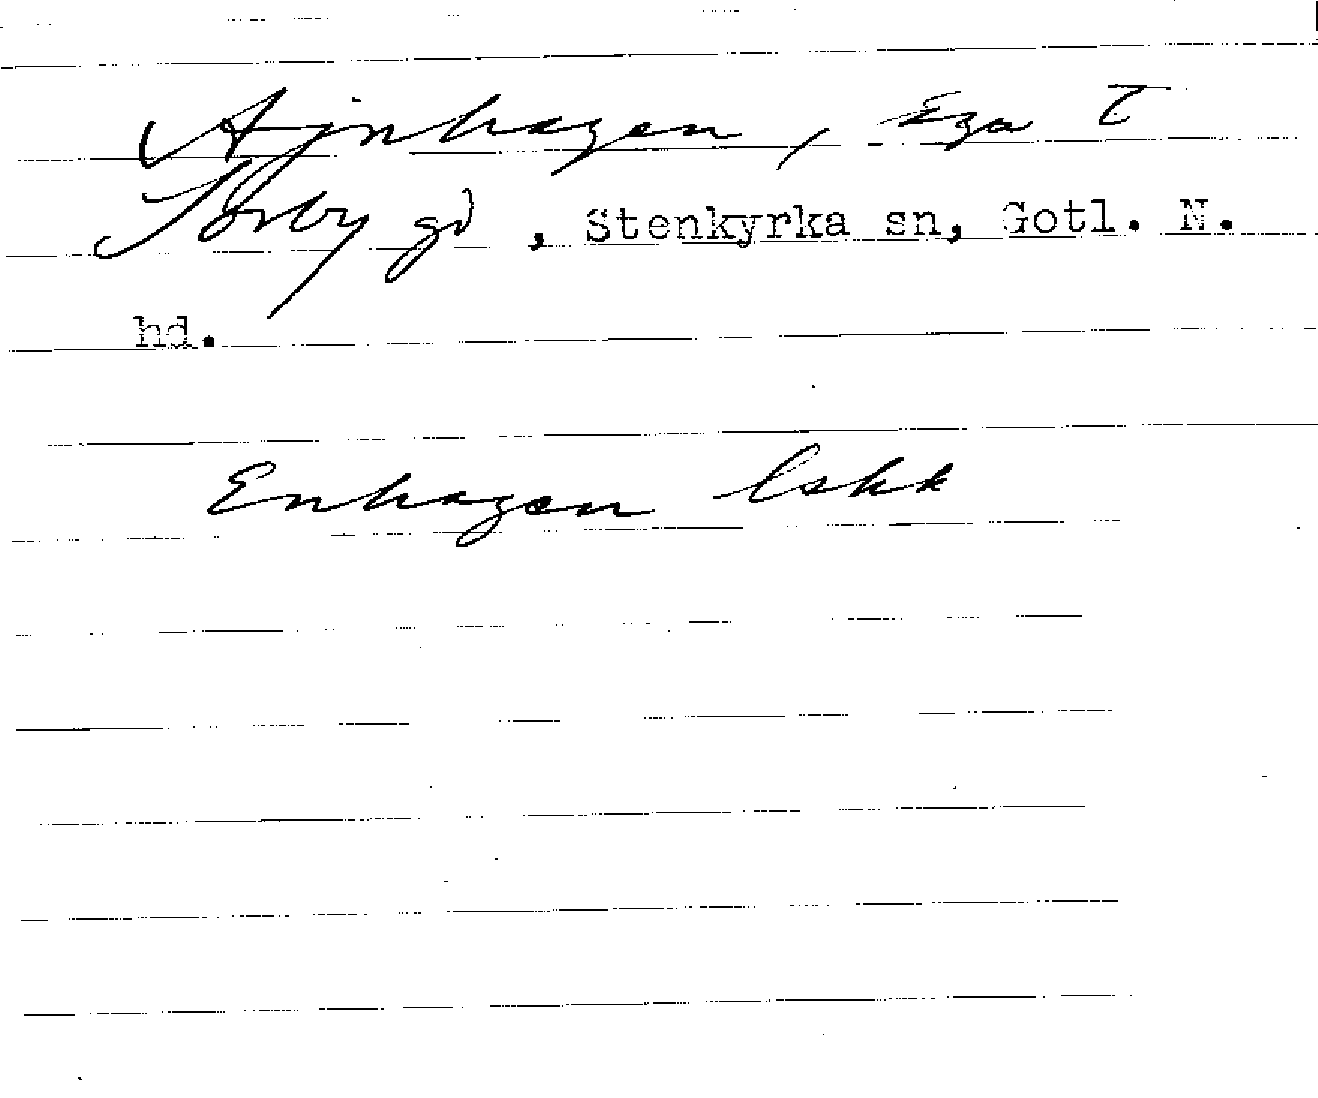 Ajnhagen, Äga T
Sorby gd, Stenkyrka sn, Gotl. N.
hd.
Enhagen Cskk